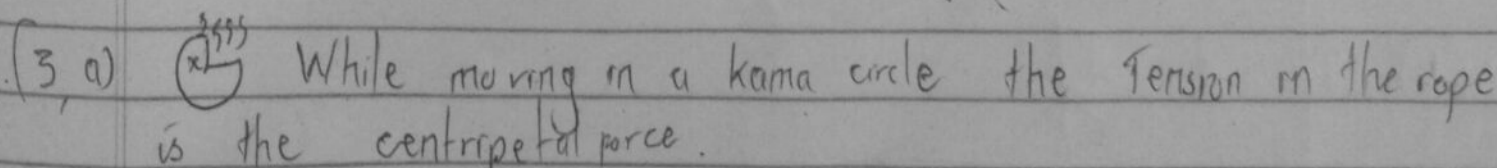 (3, a) While moving in a kama circle the Tension in the rope
is the centripetal porce.